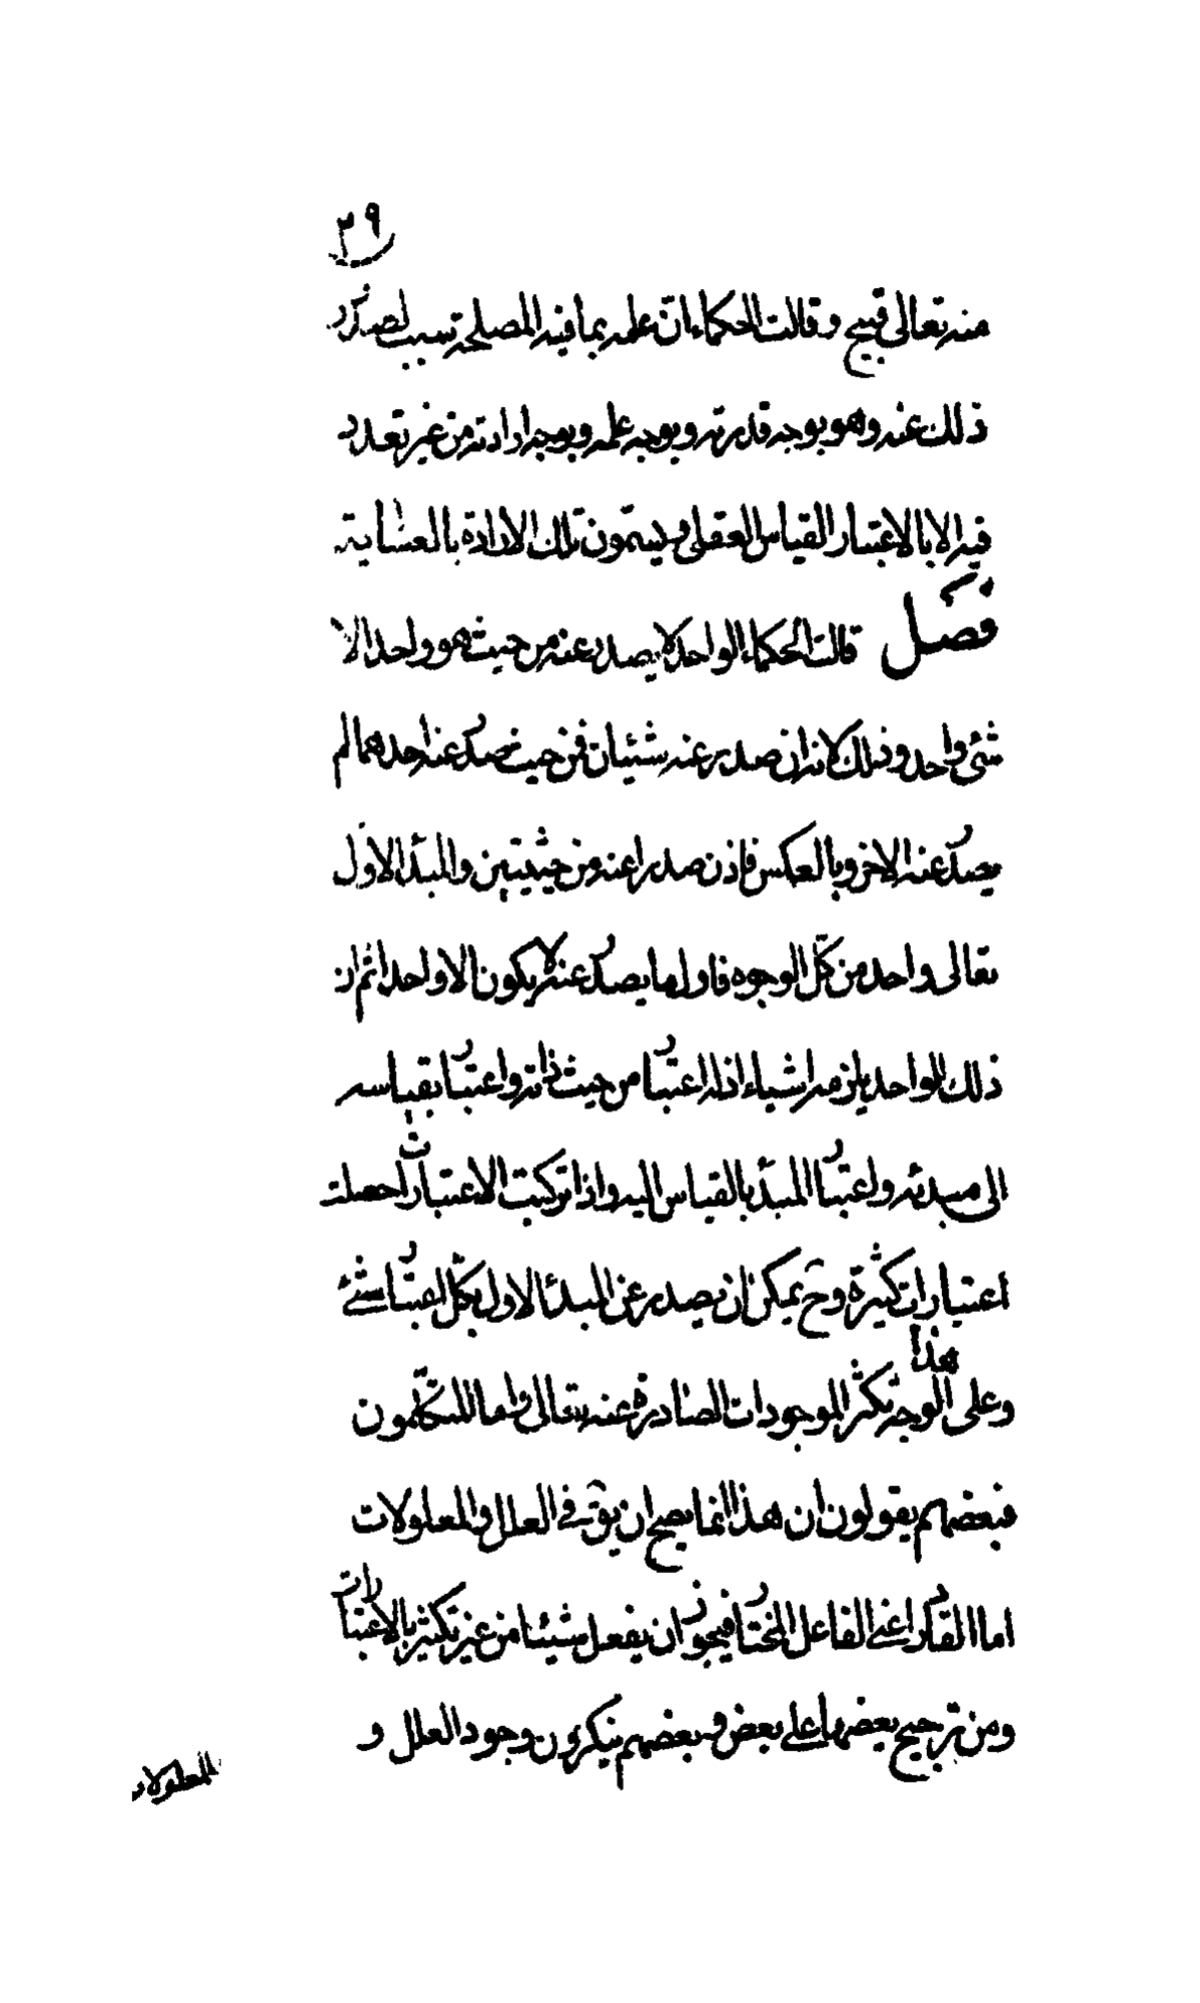 ٣٩
منه تعالى قبيح وقالت الحكماء ان علمه بما فيه المصلحة سبب لصدور
ذلك عنه وهو بوجه قدرته وبوجه علمه وبوجه ارادته من غير تعدد
فيه الا بالاعتبار القياس العقلى ويسمون تلك الارادة بالعناية
فصل قالت الحكماء الواحد لا يصدر عنه من حيث هو واحد الا
شئ واحد وذلك لانه ان صدر عنه شيئان فمن حيث صدر عنه احدهما لم
يصدر عنه الاخر وبالعكس فاذن صدرا عنه من حيثيتين والمبدأ الاول
تعالى واحد من كل الوجوه فاول ما يصدر عنه لا يكون الا واحدا ثم ان
ذلك الواحد يلزمه اشياء اذ له اعتبار من حيث ذاته واعتبار بقياسه
الى مبدئه واعتبار المبدأ بالقياس اليه واذا تركبت الاعتبارات حصلت
اعتبارات كثيرة وح يمكن ان يصدر عن المبدأ الاول بكل اعتبار شئ
وعلى هذا الوجه تكثر الموجودات الصادرة عنه تعالى واما المتكلمون
فبعضهم يقولون ان هذا انما يصح ان يق فى العلل والمعلولات
اما القادر اعنى الفاعل المختار فيجوز ان يفعل شيئا من غير تكثير بالاعتبارات
ومن ترجيح بعضها على بعض وبعضهم ينكرون وجود العلل و
المعلولات